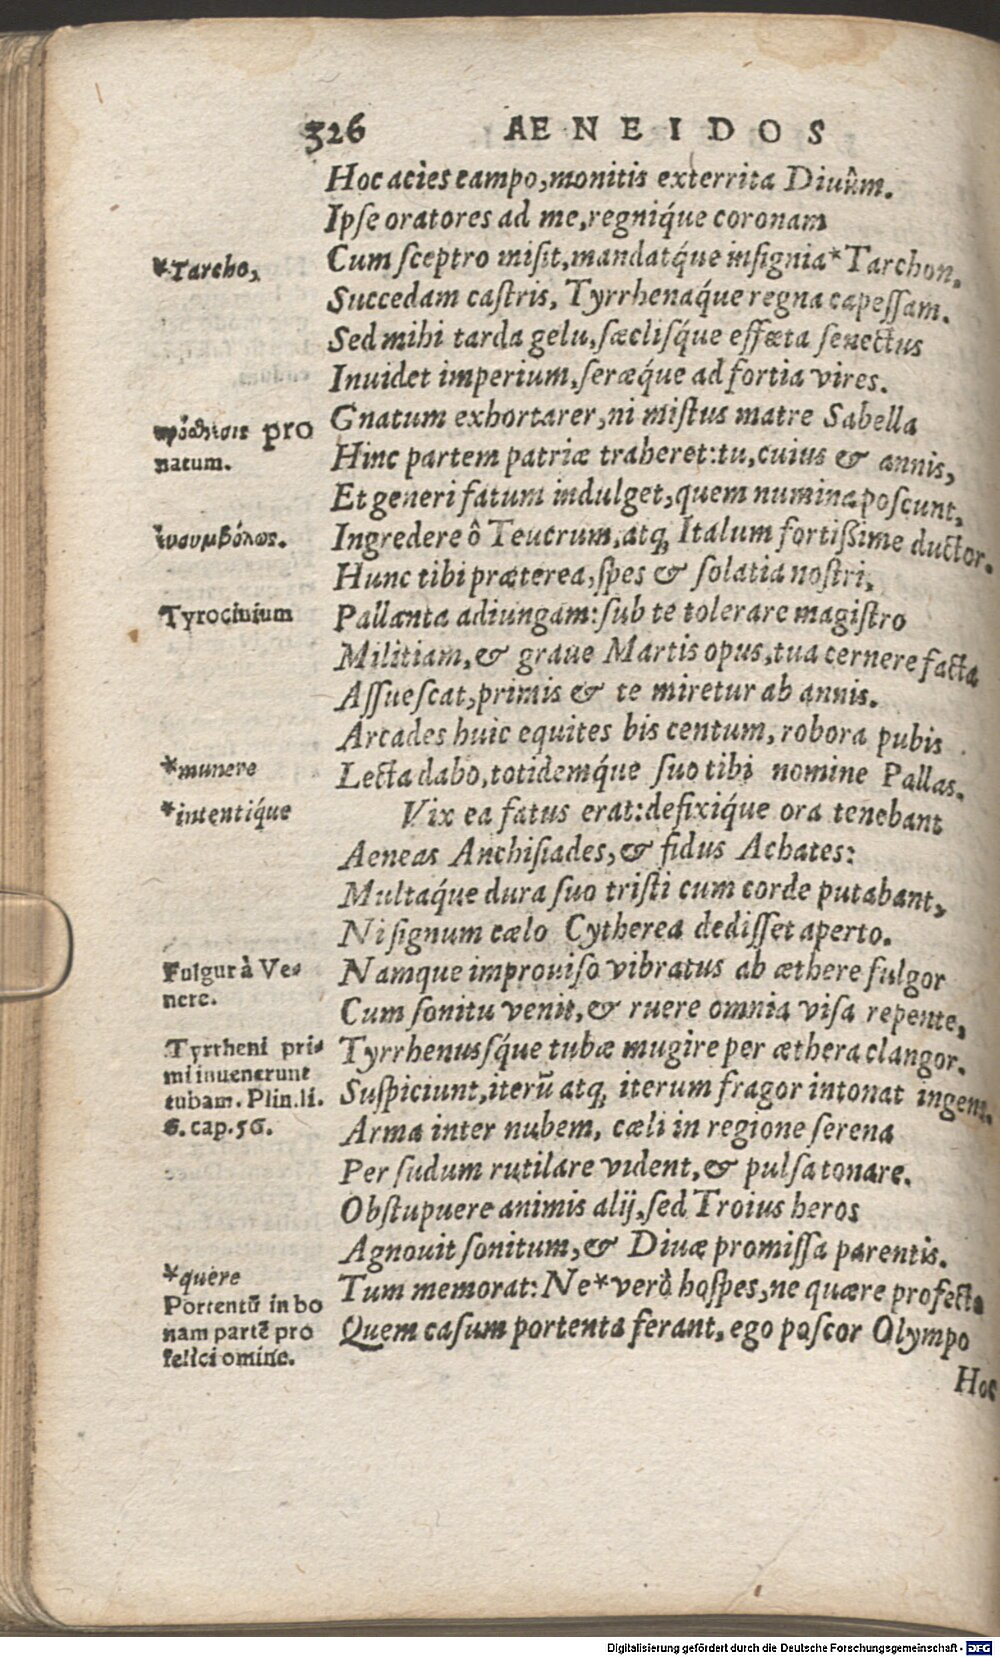 326 AENEIDOS
Hoc acies campo, monitis exterrita Diuûm.
Ipse oratores ad me, regniq́ue coronam
Cum sceptro misit, mandatq́ue insignia * Tarchon,
Succedam castris, Tyrrhenaq́ue regna capessam.
Sed mihi tarda gelu, sæclisq́ue effœta senectus
Inuidet imperium, seræq́ue ad fortia vires.
Gnatum exhortarer, ni mistus matre Sabella
Hinc partem patriæ traheret: tu, cuius & annis,
Et generi fatum indulget, quem numina poscunt,
Ingredere ô Teucrum, atq; Italum fortissime ductor.
Hunc tibi præterea, spes & solatia nostri,
Pallanta adiungam: sub te tolerare magistro
Militiam, & graue Martis opus, tua cernere facta
Assuescat, primis & te miretur ab annis.
Arcades huic equites bis centum, robora pubis
Lecta dabo, totidemq́ue suo tibi nomine Pallas.
Vix ea fatus erat: defixiq́ue ora tenebant
Aeneas Anchisiades, & fidus Achates:
Multaq́ue dura suo tristi cum corde putabant,
Ni signum cælo Cytherea dedisset aperto.
Namque improuiso vibratus ab æthere fulgor
Cum sonitu venit, & ruere omnia visa repente,
Tyrrhenusq́ue tubæ mugire per æthera clangor.
Suspiciunt, iterū atq; iterum fragor intonat ingens.
Arma inter nubem, cæli in regione serena
Per sudum rutilare vident, & pulsa tonare.
Obstupuere animis alij, sed Troius heros
Agnouit sonitum, & Diuæ promissa parentis.
Tum memorat: Ne * verò hospes, ne quære profecta
Quem casum portenta ferant, ego poscor Olympo
Hoc
* Tarcho,
pro
natum.
Tyrocinium
* munere
* intentiq́ue
Fulgur à Ve-
nere.
Tyrrheni pri-
mi inuenerunt
tubam. Plin. li.
6. cap. 56.
* quere
Portentū in bo
nam partē pro
felici omine.
Digitalisierung gefördert durch die Deutsche Forschungsgemeinschaft - DFG